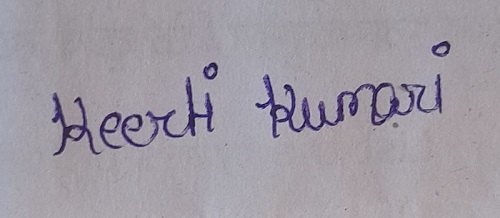 Keerti Kumari